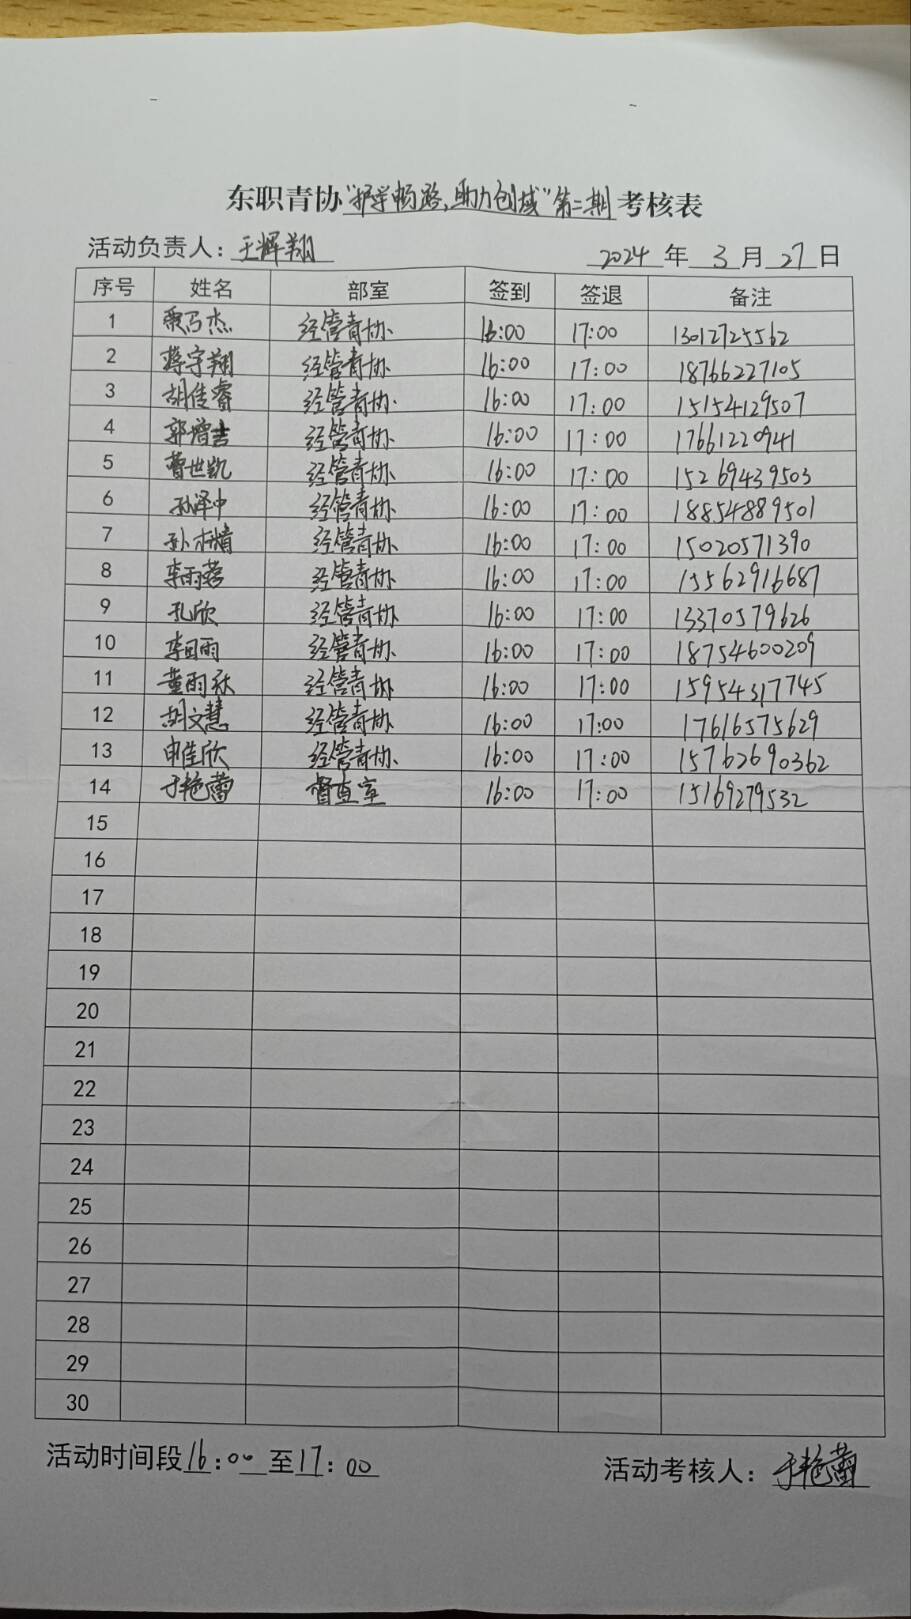 东职青协“护学畅路，助力创城”第二期考核表
活动负责人：王辉翔 2024年3月27日
序号 姓名 部室 签到 签退 备注
1 杰 经管青协 16:00 17:00 13012725562
2 蒋宇翔 经管青协 16:00 17:00 18766227105
3 胡佳睿 经管青协 16:00 17:00 15154129507
4 郭增吉 经管青协 16:00 17:00 17661220941
5 曹世凯 经管青协 16:00 17:00 15269439503
6 孙泽中 经管青协 16:00 17:00 18854889501
7 孙 经管青协 16:00 17:00 15020571390
8 李雨蓉 经管青协 16:00 17:00 15562916687
9 孔欣 经管青协 16:00 17:00 13370579626
10 李雨 经管青协 16:00 17:00 18754600209
11 董雨秋 经管青协 16:00 17:00 15954317745
12 胡文慧 经管青协 16:00 17:00 17616575629
13 申佳欣 经管青协 16:00 17:00 15762690362
14 于艳蕾 督查室 16:00 17:00 15169279532
15
16
17
18
19
20
21
22
23
24
25
26
27
28
29
30
活动时间段16:00至17:00 活动考核人：于艳蕾